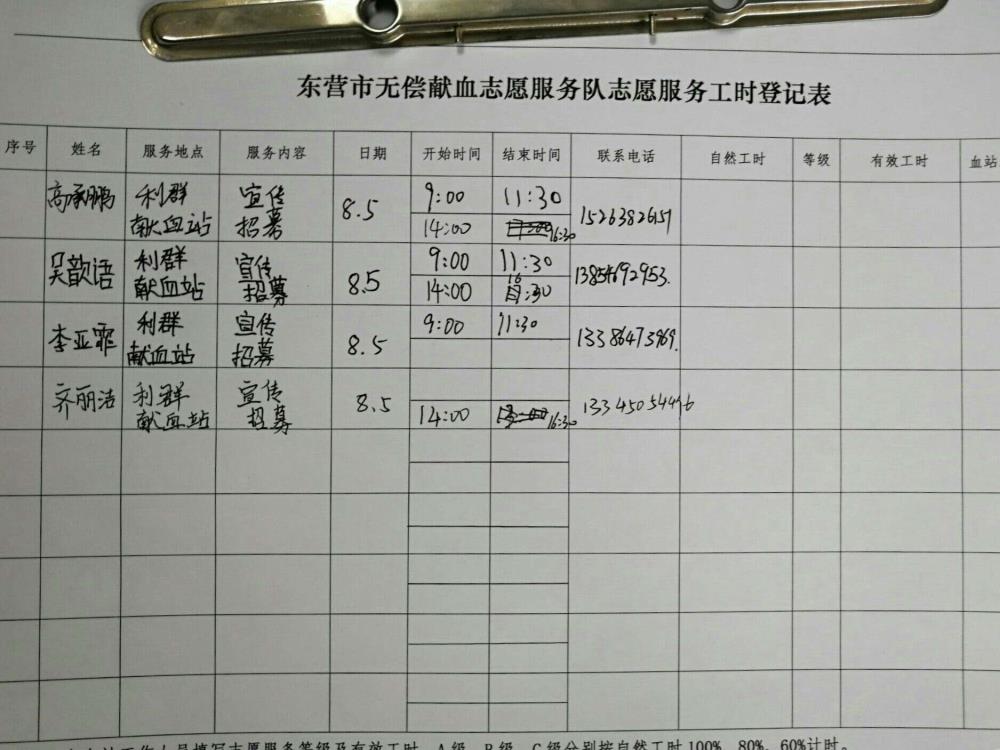 东营市无偿献血志愿服务队志愿服务工时登记表
序号 姓名 服务地点 服务内容 日期 开始时间 结束时间 联系电话 自然工时 等级 有效工时 血站
高承鹏 利群 献血站 宣传 招募 8.5 9:00 11:30 15263826151
14:00 16:30
吴歆语 利群 献血站 宣传 招募 8.5 9:00 11:30
14:00 16:30
李亚霏 利群 献血站 宣传 招募 8.5 9:00 11:30 13386473969.
齐丽洁 利群 献血站 宣传 招募 8.5 14:00 16:30
工作人员填写志愿服务等级及有效工时，A级、B级、C级分别按自然工时100%、80%、60%计时。